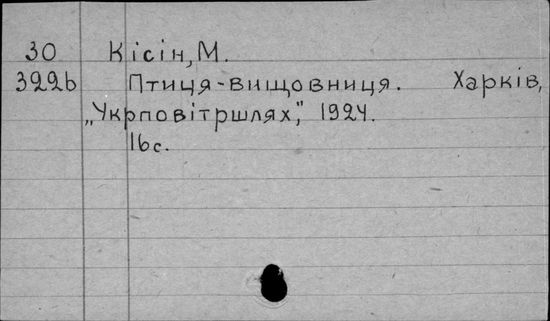 30 Кісін, М.
3226 Птиця-вищовниця. Харків,
„Укрповітршлях", 1924.
16с.